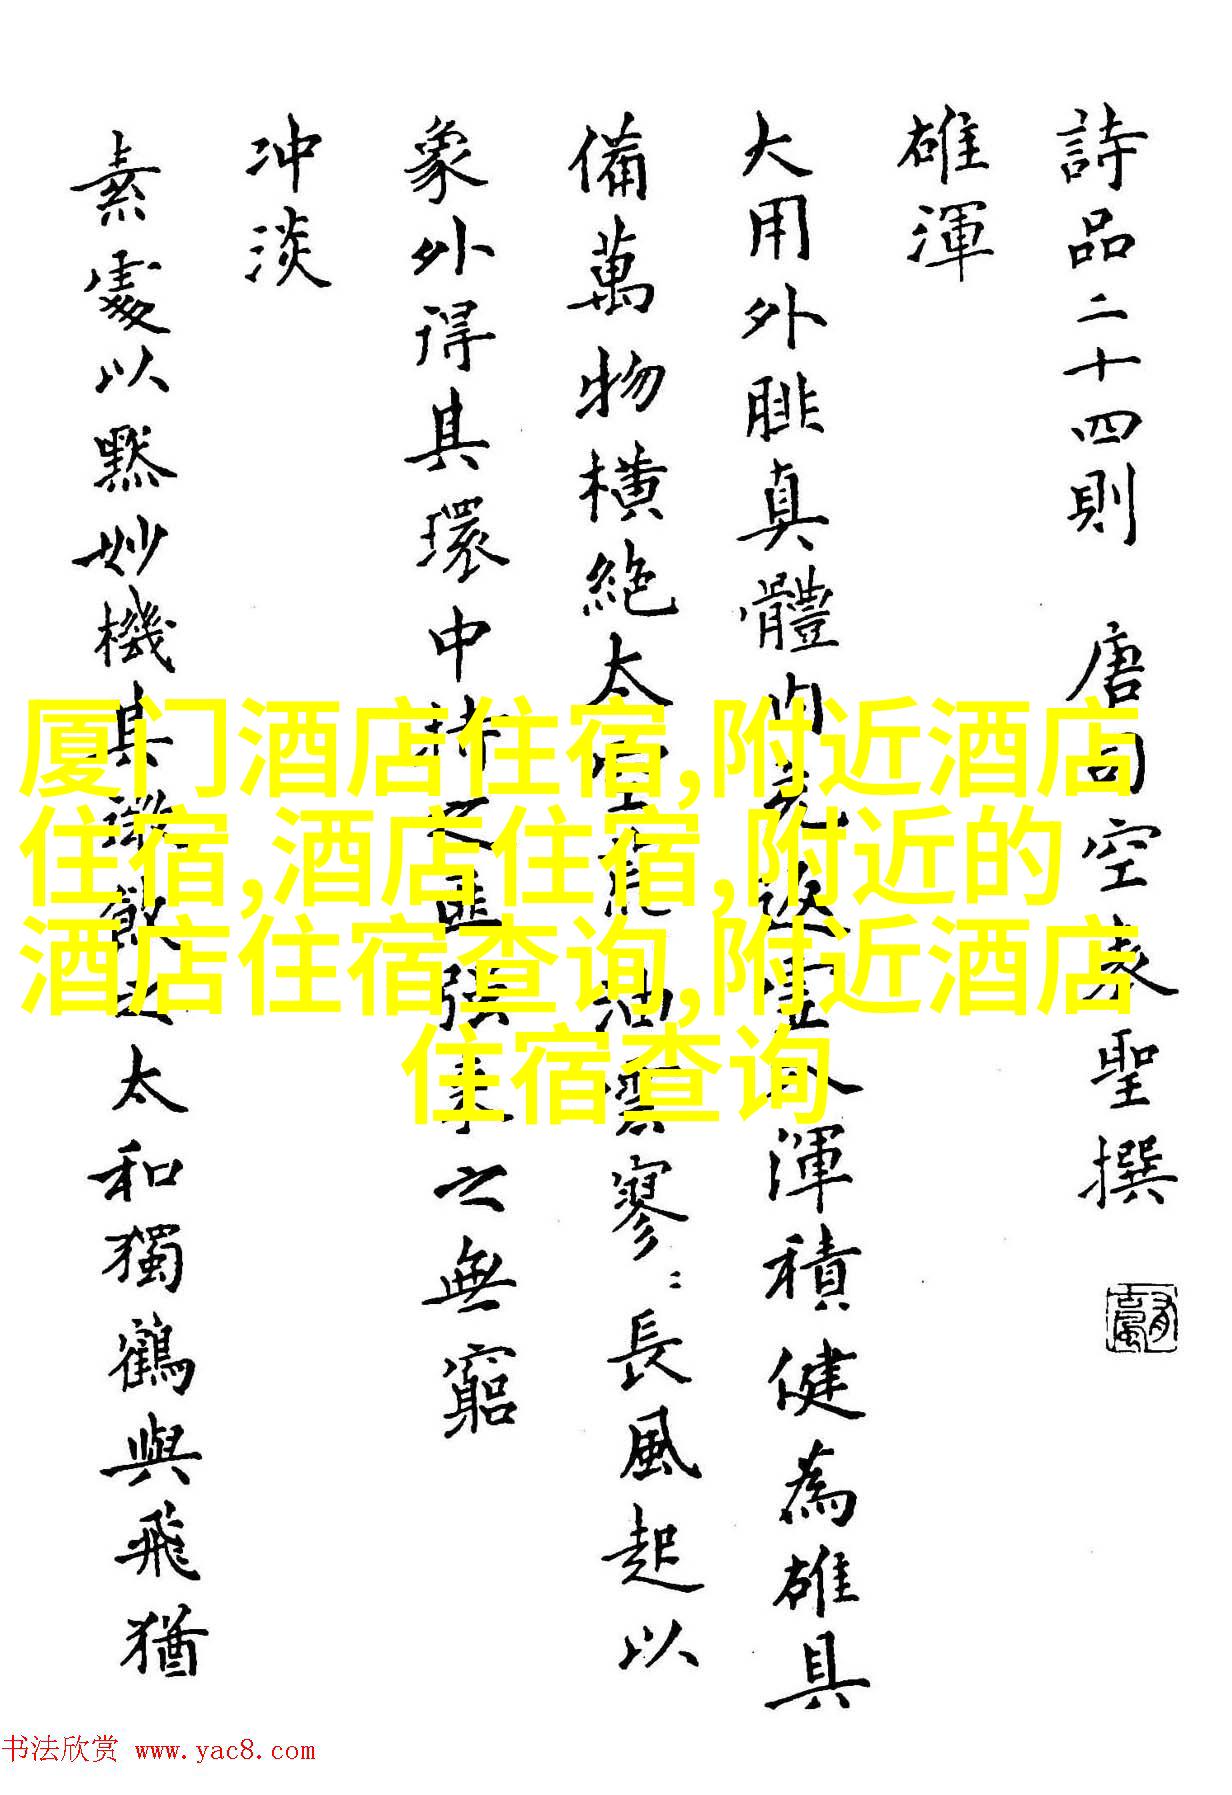 詩品二十四則 唐司空表聖撰
雄渾
大用外腓真體内充返虚入渾積健為雄具
備萬物横絶太空荒油雲寥〻長風起以
象外得其環中持之匪强来之無窮
冲淡
素處以默妙機其微飲之太和獨鶴與飛猶
厦门酒店住宿,附近酒店
住宿,酒店住宿,附近的
酒店住宿查询,附近酒店
住宿查询
书法欣赏 www.yac8.com